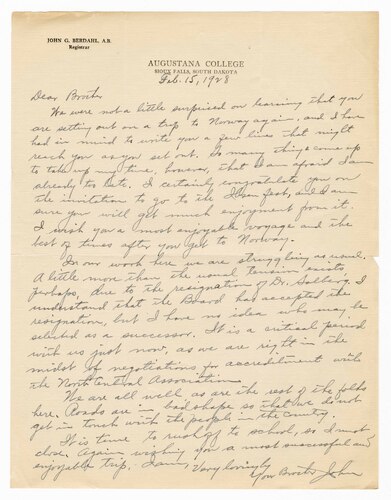 JOHN G. BERDAHL, A.B.
Registrar
AUGUSTANA COLLEGE
SIOUX FALLS, SOUTH DAKOTA
Feb. 15, 1928
Dear Brother
We were not a little surprised on learning that you
are setting out on a trip to Norway again, and I have
had in mind to write you a few lines that might
reach you as you set out. So many things come up
to take up my time, however, that I am afraid I am
already too late. I certainly congratulate you on
the invitation to go to the Ibsen fest, and I am
sure you will get much enjoyment from it.
I wish you a most enjoyable voyage and the
best of times after you get to Norway.
In our work here we are struggling as usual.
A little more than the usual tension exists
perhaps, due to the resignation of Dr. Solberg. I
understand that the Board has accepted the
resignation, but I have no idea who may be
selected as a successor. It is a critical period
with us just now, as we are right in the
midst of negotiations for accreditment with
the North Central Association.
We are all well as are the rest of the folks
here. Roads are in bad shape so that we do not
get in touch with the people in the country.
It is time to rush off to school, so I must
close. Again wishing you a most successful and
enjoyable trip, I am, Very lovingly
Your Brother John